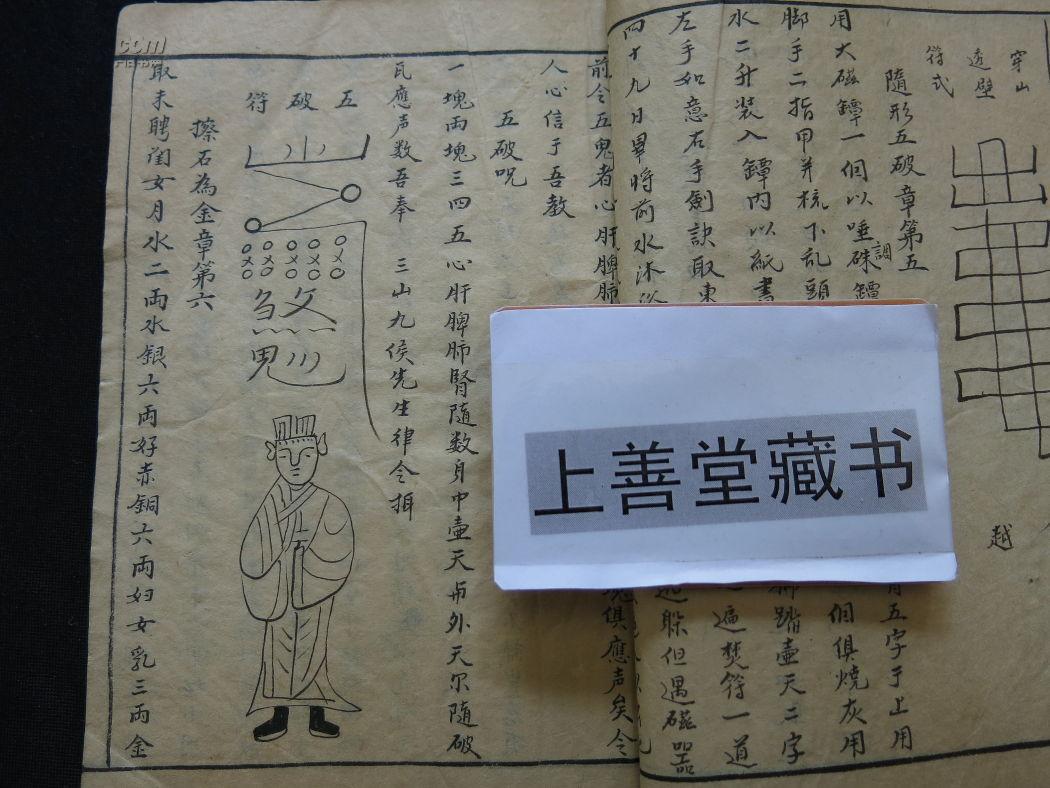 穿山
透壁
符式
越
隨形五破章第五
用大磁罈一個以唾硃調罈
五字于上用
脚手二指甲并梳下乱頭
個俱燒灰用
水二升装入罈内以紙書
踏壷天二字
左手如意右手劍訣取東
遍焚符一道
四十九日畢將前水沐浴
躲但遇磁器
前令五鬼者心肝脾肺
俱應声矣令
人心信于吾教
五破咒
一塊両塊三四五心肝脾肺腎隨数身中壷天另外天尔隨破
瓦應声数吾奉 三山九侯先生律令摄
五破符
擦石為金章第六
取未聘閨女月水二両水銀六両好赤銅六両妇女乳三両金
上善堂藏书